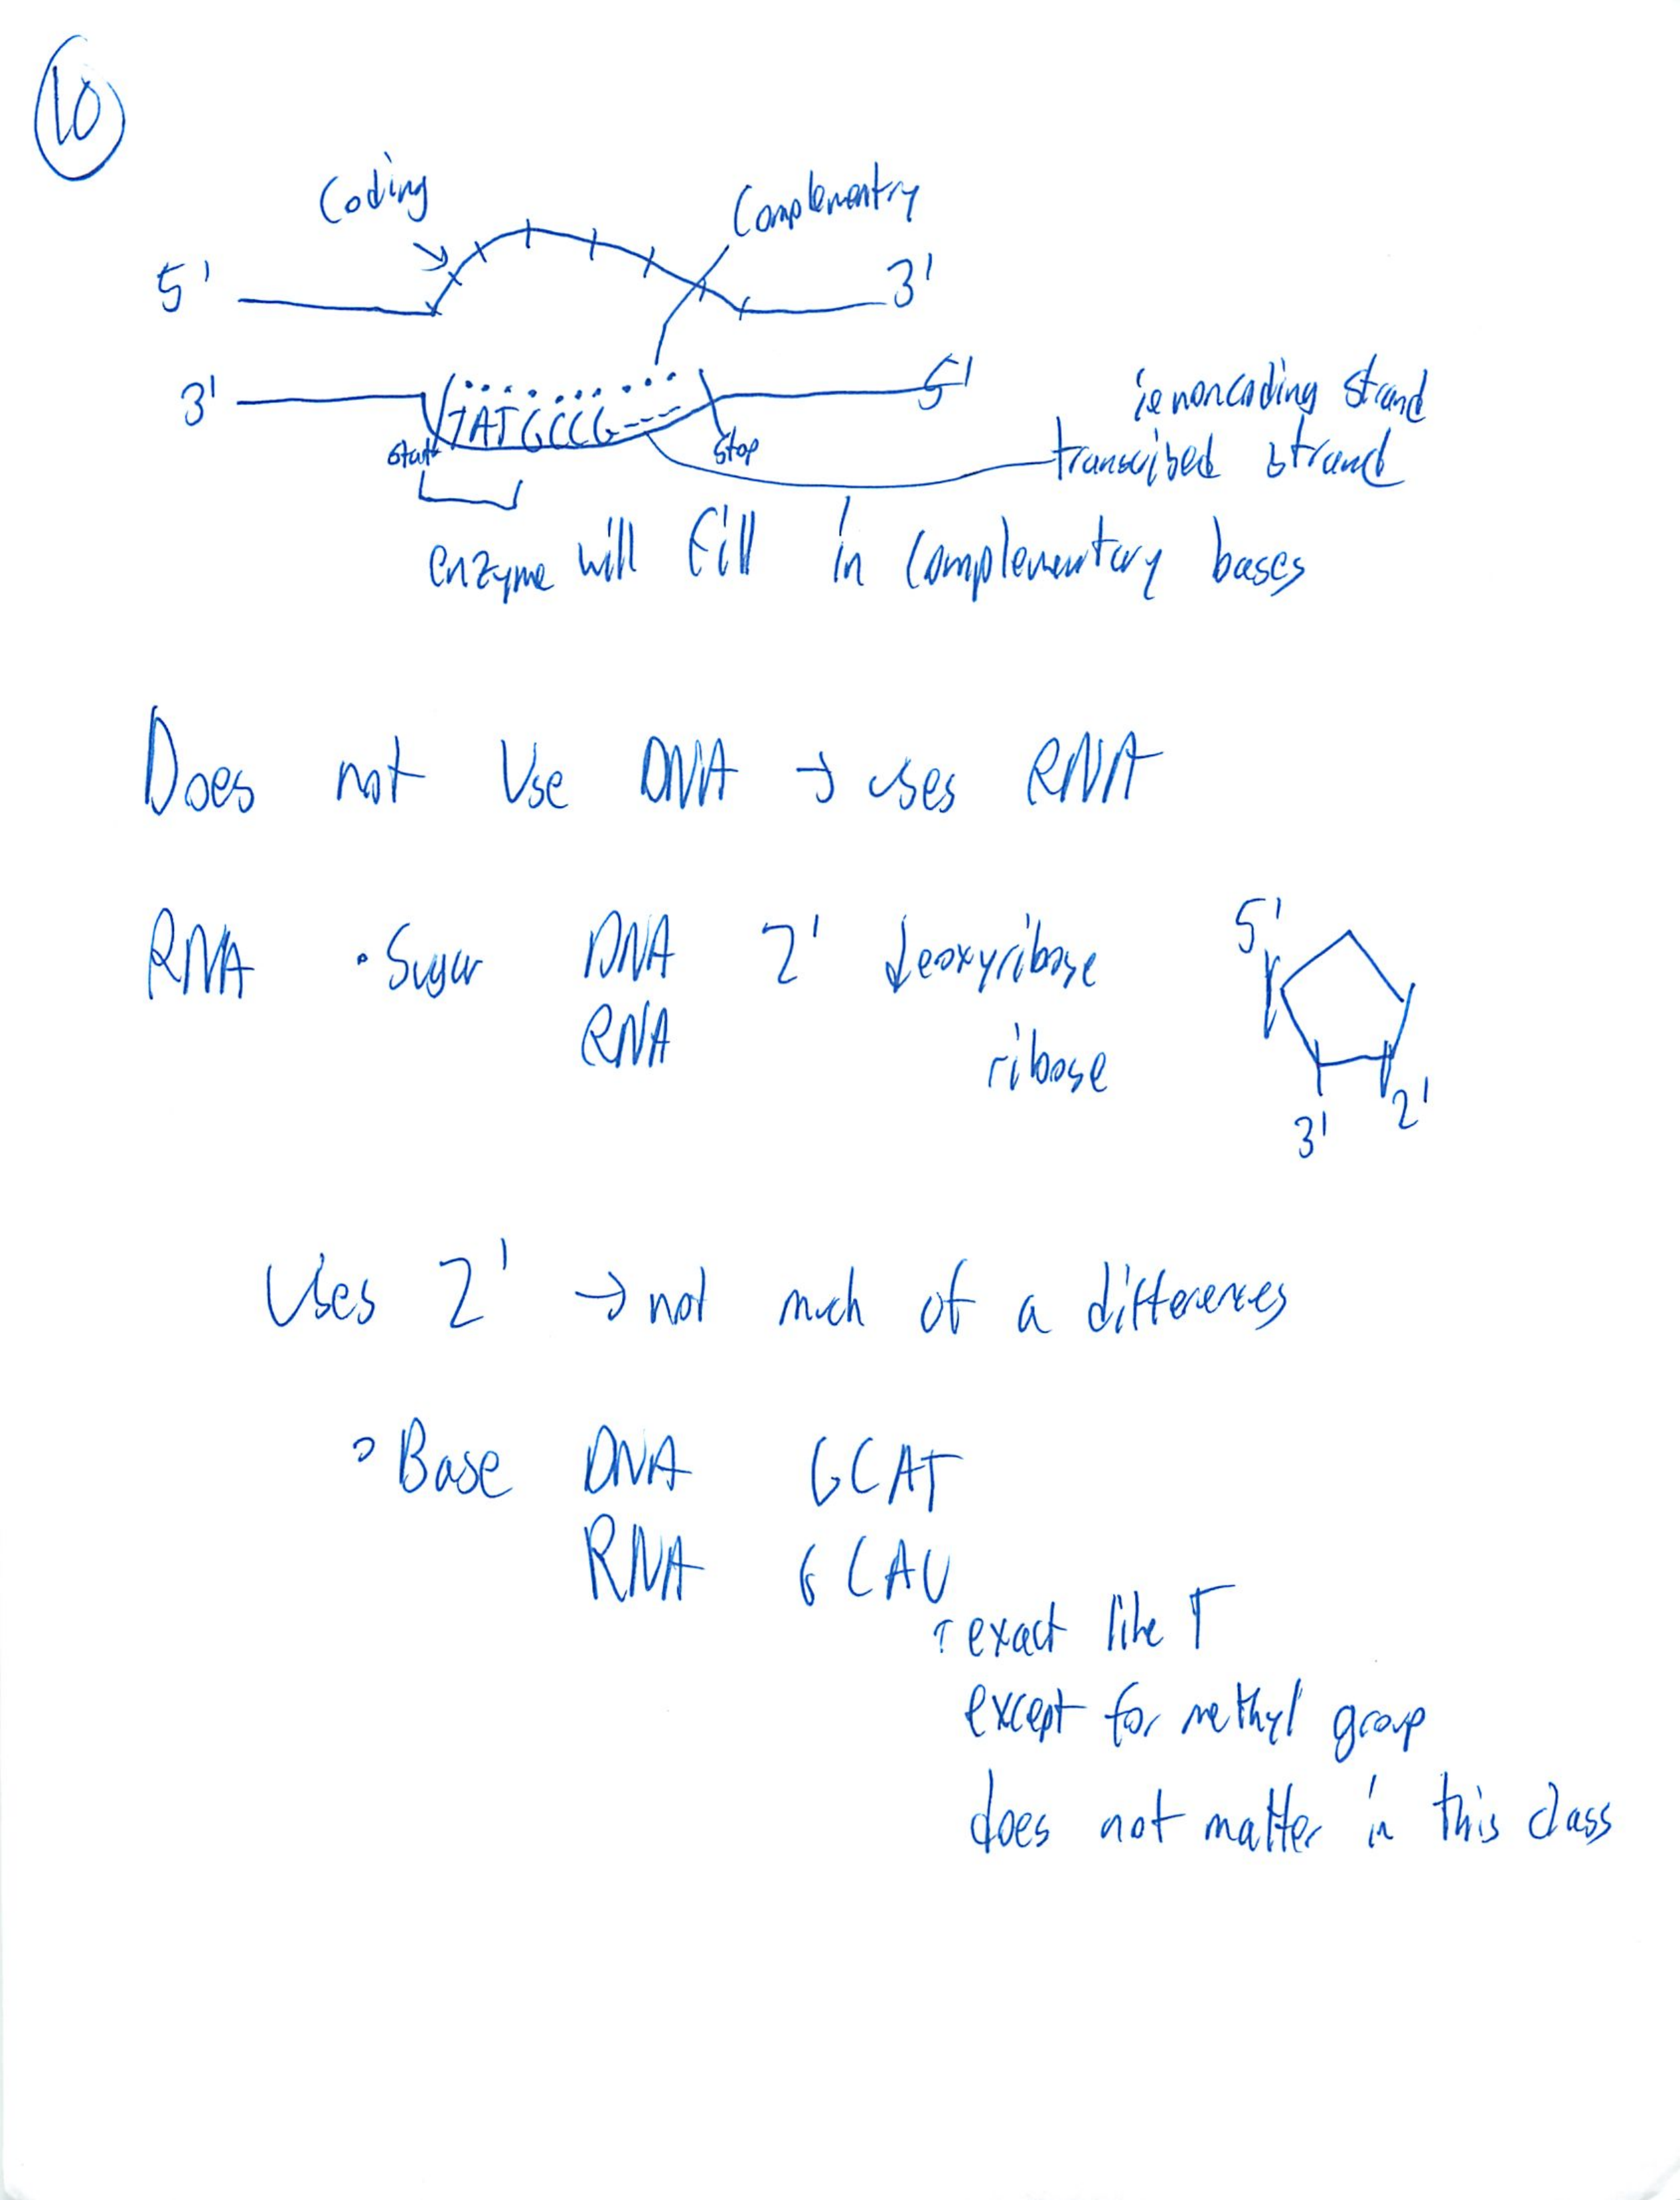 10
Coding
Complementry
5'
3'
3'
5'
TATGCCG---
start
stop
ie noncoding strand
transcribed strand
enzyme will fill in complementary bases
Does not Use DNA → uses RNA
RNA • Sugar DNA 2' deoxyribose
RNA ribose
5'
3'
2'
Uses 2' → not much of a differences
• Base DNA GCAT
RNA GCAU
↑ exact like T
except for methyl group
does not matter in this class